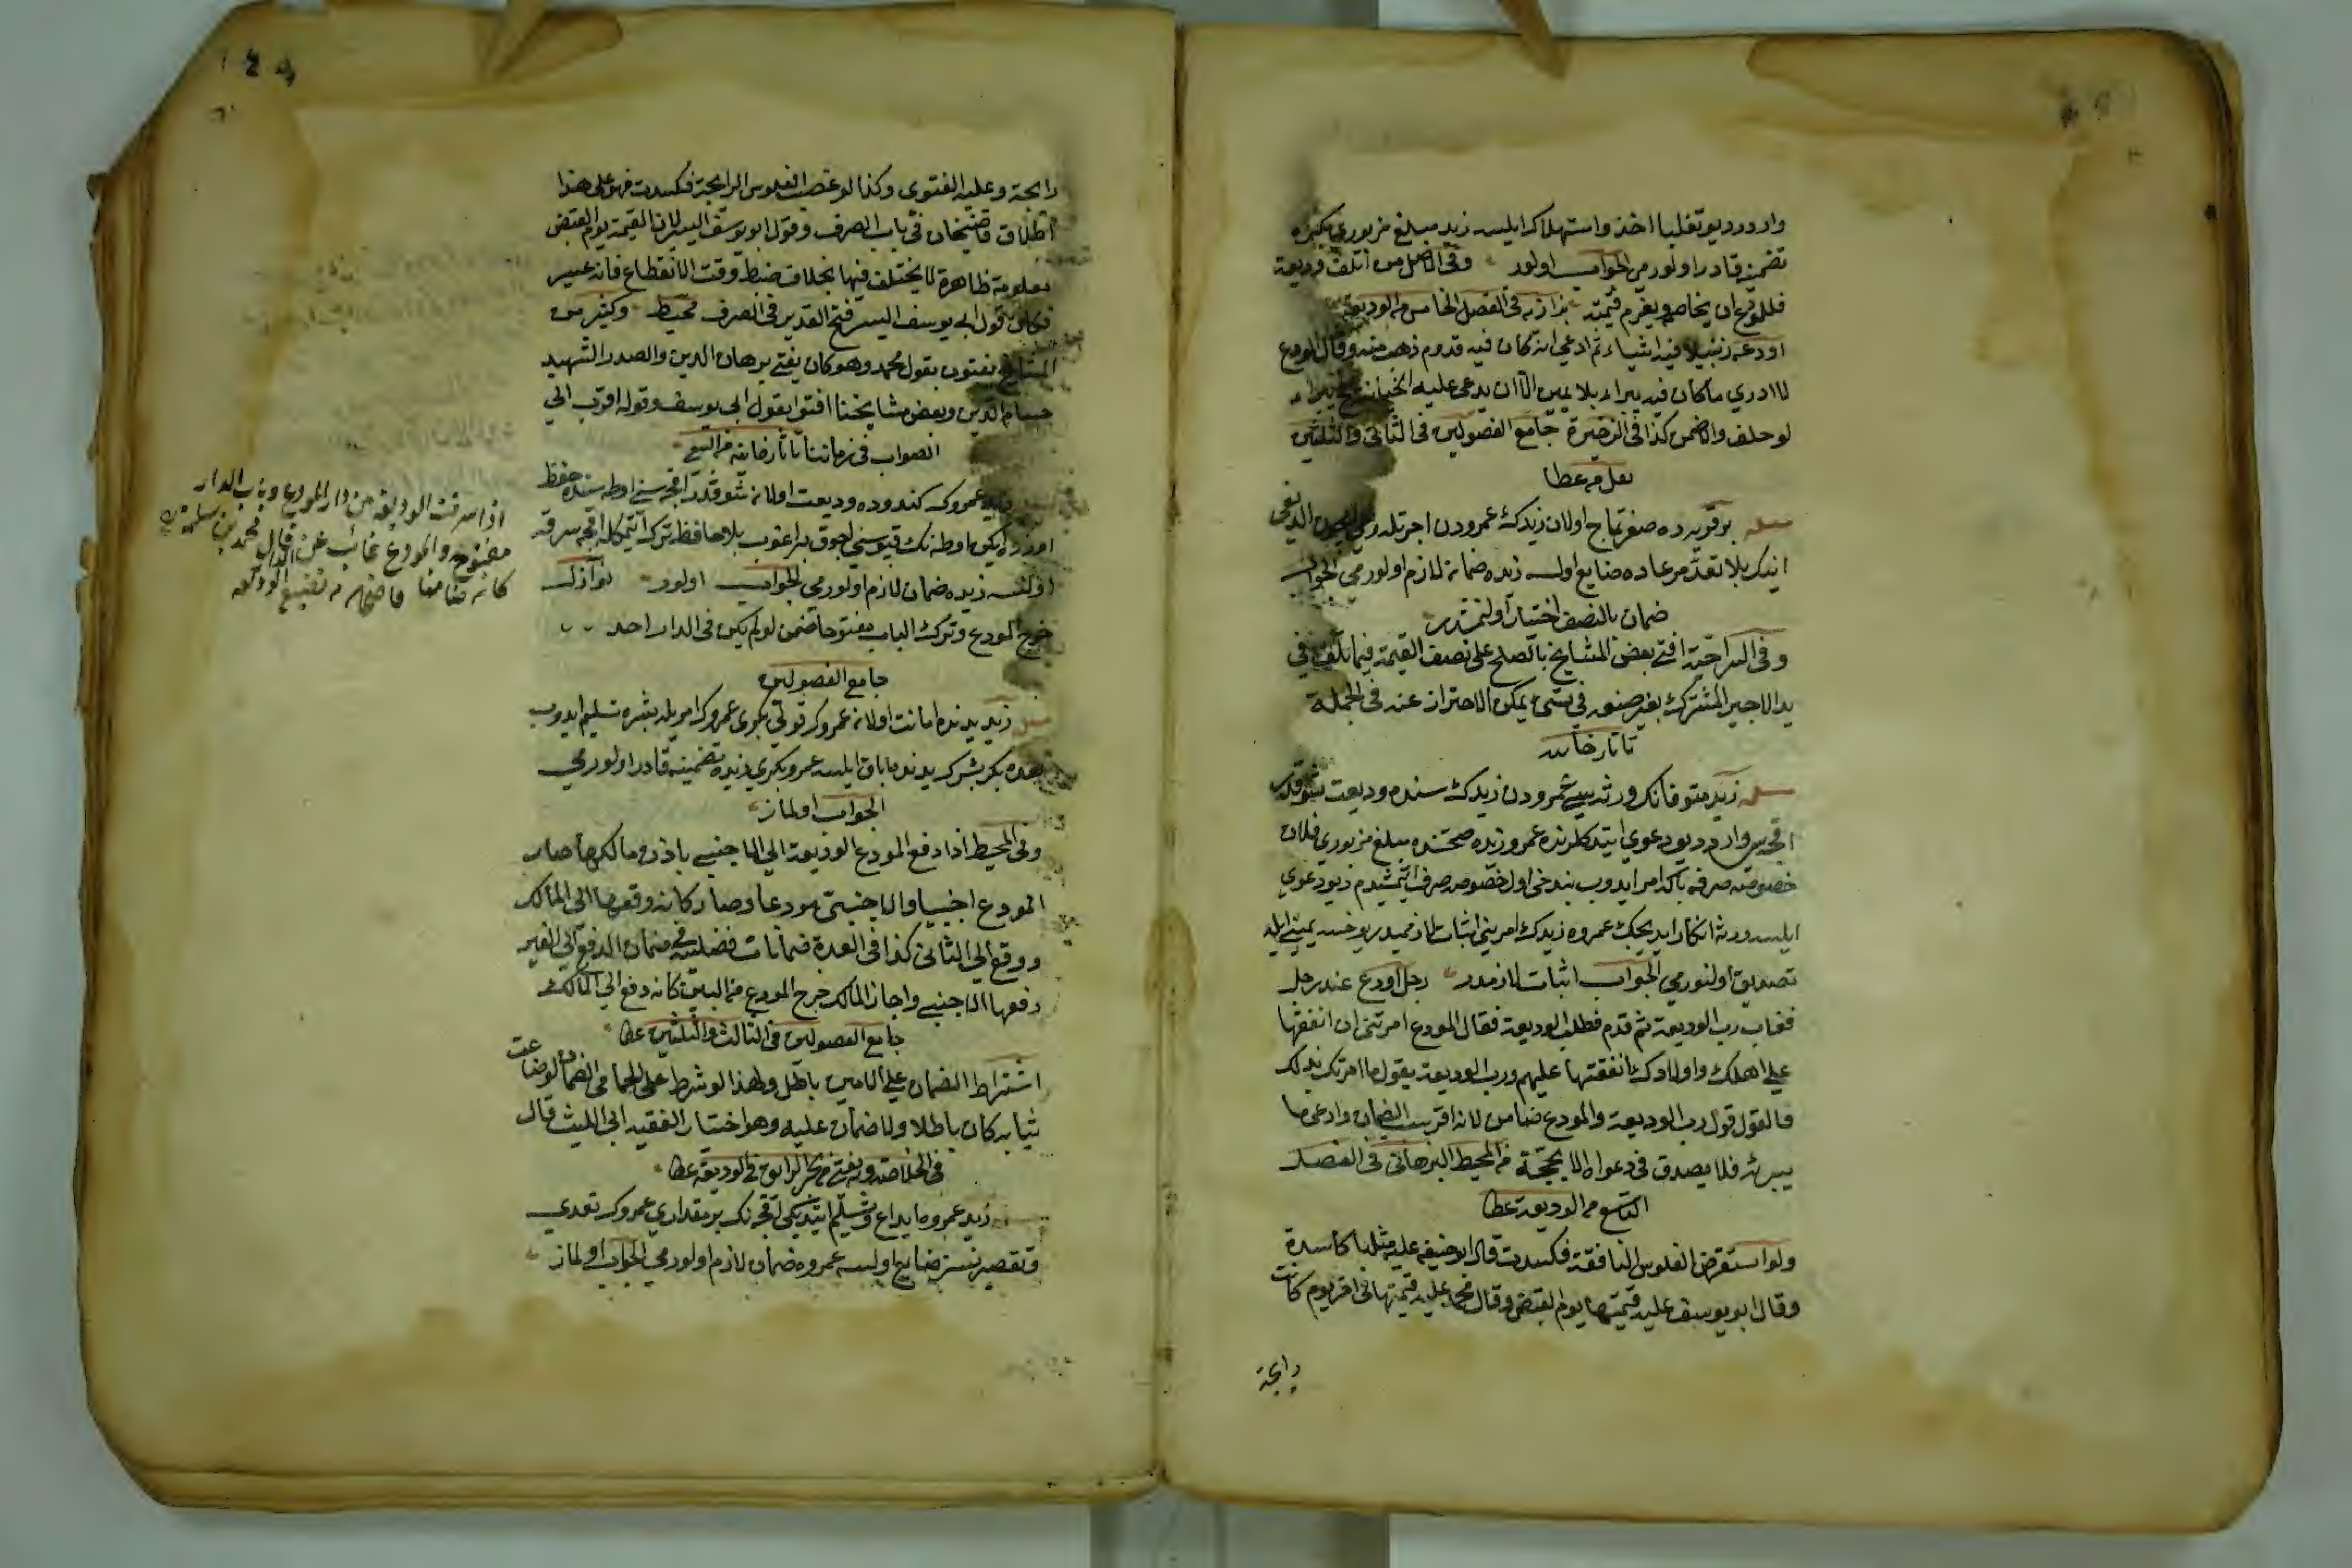 وار در ديو تغلبا اخذ واستهلاك ايلسه زيد مبلغ مزبوري بكره
تضمينه قادر اولور مي الجواب اولور وفي الاصل من اتلف وديعة
فللمودع ان يخاصم ويغرم قيمته بزازيه في الفصل الخامس من الوديعة
اودعه زنبيلا فيه اشياء ثم ادعى انه كان فيه قدوم ذهب منه وقال المودع
لا ادري ما كان فيه يبراء بلا يمين الا ان يدعى عليه الخيانة يبراء
لو حلف والا ضمن كذا في الذخيرة جامع الفصولين في الثاني والثلثين
نقل من عطا
مسئله بر قريه ده صغرتماج اولان زيدك عمرودن اجرتله
انيك بلا تعد مرعاده ضايع اولسه زيده ضمان لازم اولور مي الجواب
ضمان بالنصف اختيار اولنمشدر
وفي السراجية افتى بعض المشايخ بالصلح على نصف القيمة فيما تلف في
يد الاجير المشترك بغير صنعه في شئ يمكن الاحتراز عنه في الجملة
تاتارخانيه
مسئله زيد متوفانك ورثه سي عمرودن زيدك سنده وديعت شو قدر
اقچه سى واردر ديو دعوي ايتدكلرنده عمرو زيده صحتنده مبلغ مزبوري فلان
خصوصه صرفه بكا امر ايدوب بن دخى اول خصوصه صرف ايتمشيدم ديو دعوي
ايلسه ورثه انكار ايديجك عمروه زيدك امريني اثبات لازميدر يوخسه يمينى ايله
تصديق اولنور مي الجواب اثبات لازمدر رجل اودع عند رجل
فغاب رب الوديعة ثم قدم فطلب الوديعة فقال المودع امرتني ان انفقها
على اهلك واولادك فانفقتها عليهم ورب الوديعة يقول ما امرتك بذلك
فالقول قول رب الوديعة والمودع ضامن لانه اقر بسبب الضمان وادعى ما
يبرئه فلا يصدق في دعواه الا بحجة من المحيط البرهاني في الفصل
التاسع من الوديعة عطا
ولو استقرض الفلوس النافقة فكسدت قال ابو حنيفه عليه مثلها كاسدة
وقال ابو يوسف عليه قيمتها يوم القبض وقال محمد عليه قيمتها في اخر يوم كانت
رايجة
رايجة وعليه الفتوى وكذا لو غصب الفلوس الرايجة فكسدت فهو على هذا
اطلاق قاضيخان في باب الصرف وقول ابو يوسف ايسر لان القيمة يوم القبض
معلومة ظاهرة لا يختلف فيها بخلاف ضبط وقت الانقطاع فانه عسير
فكان قول ابي يوسف ايسر فتح القدير في الصرف محيط وكثير من
المشايخ يفتون بقول محمد وهو كان يفتي برهان الدين والصدر الشهيد
حسام الدين وبعض مشايخنا افتوا بقول ابي يوسف وقوله اقرب الى
الصواب في زماننا تاتارخانيه من البيع
زيد عمروك كندوده وديعت اولان شو قدر اقچه سنى اوطه سنده حفظ
اوزره ايكن اوطه نك قپوسنى اچوق براغوب بلا حافظ ترك ايتمكله اقچه سرقه
اولنسه زيده ضمان لازم اولور مي الجواب اولور نوازل
خرج المودع وترك الباب مفتوحا ضمن لو لم يكن في الدار احد
جامع الفصولين
مسئله زيد يدنده امانت اولان عمروك قولنى بكرى عمروك امريله بشره تسليم ايدوب
بعده بكر بشرك يدندن اباق ايلسه عمرو بكري زيده تضمينه قادر اولور مي
الجواب اولماز
وفي المحيط اذا دفع المودع الوديعة الى الاجنبي باذن مالكها صار
المودع اجنبيا والاجنبي مودعا وصار كانه دفعها الى المالك
ودفع الى الثاني كذا في العدة ضمانات فضليه في ضمان الدفع الى الغير
دفعها الاجنبي واجاز المالك خرج المودع من البين كانه دفع الى المالك
جامع الفصولين في الثالث والثلثين عطا
اشتراط الضمان على الامين باطل ولهذا لو شرط على الحمامي الضمان لو ضاعت
ثيابه كان باطلا ولا ضمان عليه وهو اختيار الفقيه ابى الليث قال
في الخلاصة وبه يفتى من بحر الرايق في الوديعه عطا
زيد عمروه ايداع وتسليم ايتديكى اقچه نك بر مقداري عمروك تعدي
وتقصيرسز ضايع اولسه عمروه ضمان لازم اولور مي الجواب اولماز
اذا سرقت الوديعة من دار المودع وباب الدار
مفتوح والمودع غائب عن الدار قال محمد بن سلمة
كان ضامنا قاضيخان من تضييع الوديعه